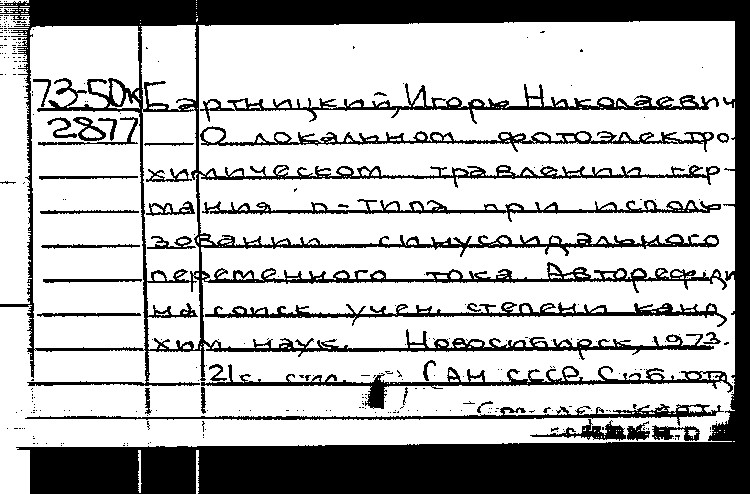 73-50к Бартницкий, Игорь Николаевич
2877 О локальном фотоэлектро-
химическом травлении гер-
мания n-типа при исполь-
зовании синусоидального
переменного тока. Автореф. дис.
на соиск. учен. степени канд.
хим. наук. Новосибирск, 1973.
21с. стпл. (АН СССР. Сиб. отд-
См. след. карт.